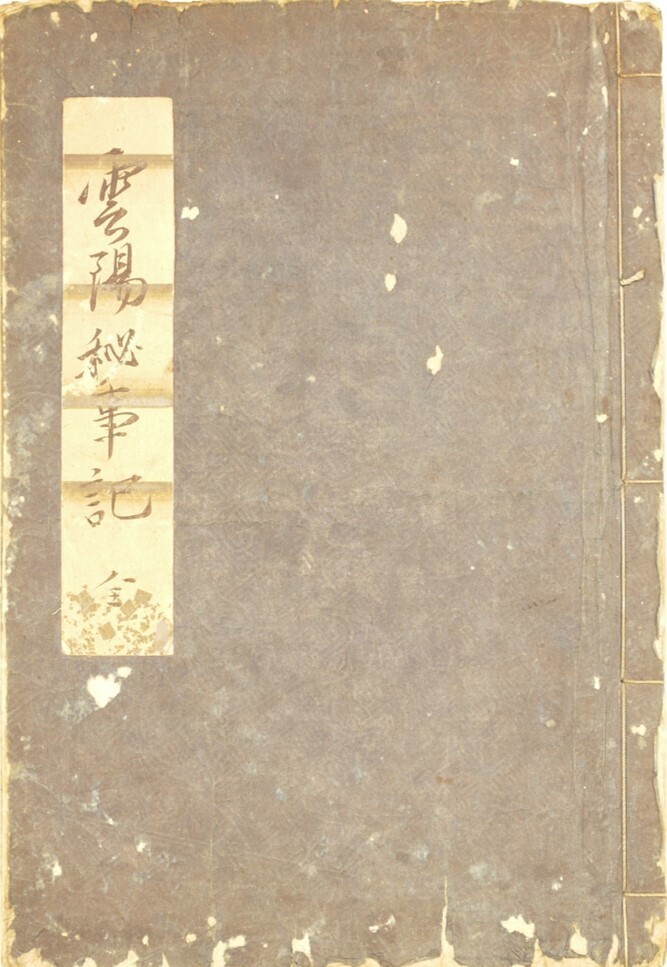 雲陽秘事記 全